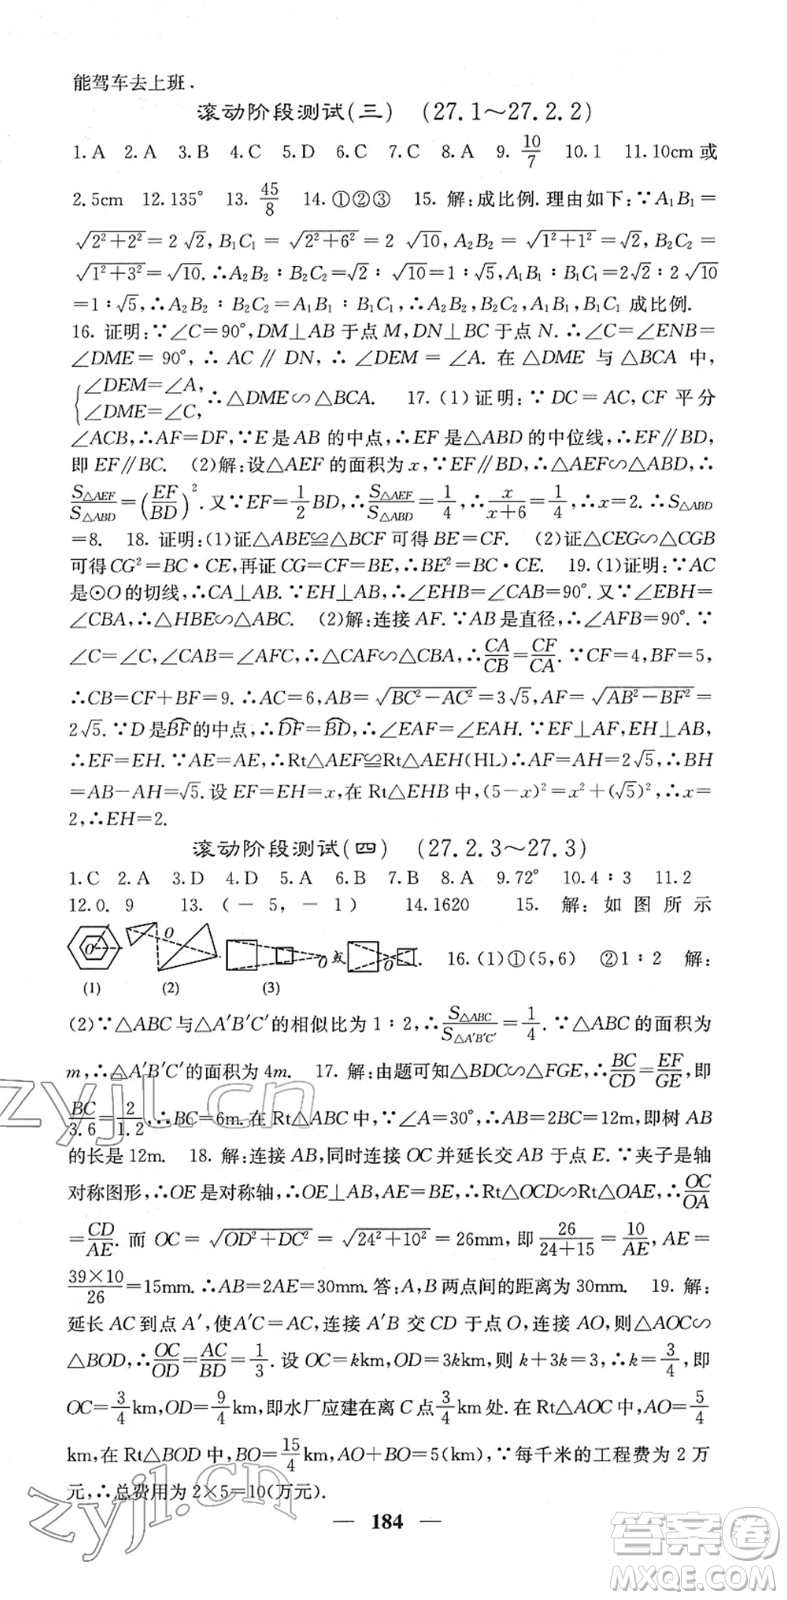 能驾车去上班.
滚动阶段测试(三) (27.1～27.2.2)
1.A 2.A 3.B 4.C 5.D 6.C 7.C 8.A 9. 10/7 10.1 11.10cm 或
2.5cm 12.135° 13. 45/8 14.①②③ 15. 解:成比例. 理由如下:∵A₁B₁=
√(2²+2²)=2√2,B₁C₁=√(2²+6²)=2√10,A₂B₂=√(1²+1²)=√2,B₂C₂=
√(1²+3²)=√10.∴A₂B₂∶B₂C₂=√2∶√10=1∶√5,A₁B₁∶B₁C₁=2√2∶2√10
=1∶√5,∴A₂B₂∶B₂C₂=A₁B₁∶B₁C₁.∴A₂B₂,B₂C₂,A₁B₁,B₁C₁ 成比例.
16. 证明:∵∠C=90°,DM⊥AB 于点 M,DN⊥BC 于点 N.∴∠C=∠ENB=
∠DME=90°,∴AC∥DN,∴∠DEM=∠A. 在△DME 与△BCA 中,
{∠DEM=∠A,
∠DME=∠C, ∴△DME∽△BCA. 17. (1)证明:∵DC=AC,CF 平分
∠ACB,∴AF=DF,∵E 是 AB 的中点,∴EF 是△ABD 的中位线,∴EF∥BD,
即 EF∥BC. (2)解:设△AEF 的面积为 x,∵EF∥BD,∴△AEF∽△ABD,∴
S△AEF/S△ABD=(EF/BD)². 又∵EF=1/2BD,∴S△AEF/S△ABD=1/4,∴x/(x+6)=1/4,∴x=2.∴S△ABD
=8. 18. 证明:(1)证△ABE≌△BCF 可得 BE=CF. (2)证△CEG∽△CGB
可得 CG²=BC·CE,再证 CG=CF=BE,∴BE²=BC·CE. 19.(1)证明:∵AC
是⊙O 的切线,∴CA⊥AB.∵EH⊥AB,∴∠EHB=∠CAB=90°.又∵∠EBH=
∠CBA,∴△HBE∽△ABC. (2)解:连接 AF.∵AB 是直径,∴∠AFB=90°.∵
∠C=∠C,∠CAB=∠AFC,∴△CAF∽△CBA,∴CA/CB=CF/CA.∵CF=4,BF=5,
∴CB=CF+BF=9.∴AC=6,AB=√(BC²-AC²)=3√5,AF=√(AB²-BF²)=
2√5.∵D 是BF的中点,∴DF=BD,∴∠EAF=∠EAH.∵EF⊥AF,EH⊥AB,
∴EF=EH.∵AE=AE,∴Rt△AEF≌Rt△AEH(HL)∴AF=AH=2√5,∴BH
=AB-AH=√5. 设 EF=EH=x,在 Rt△EHB 中,(5-x)²=x²+(√5)²,∴x=
2,∴EH=2.
滚动阶段测试(四) (27.2.3～27.3)
1.C 2.A 3.D 4.D 5.A 6.B 7.B 8.A 9.72° 10.4∶3 11.2
12.0.9 13.(-5,-1) 14.1620 15. 解:如图所示
O O O 或 O . 16.(1)①(5,6) ②1∶2 解:
(1) (2) (3)
(2)∵△ABC 与△A′B′C′的相似比为 1∶2,∴S△ABC/S△A′B′C′=1/4.∵△ABC 的面积为
m,∴△A′B′C′的面积为 4m. 17. 解:由题可知△BDC∽△FGE,∴BC/CD=EF/GE,即
BC/3.6=2/1.2,∴BC=6m. 在 Rt△ABC 中,∵∠A=30°,∴AB=2BC=12m,即树 AB
的长是 12m. 18. 解:连接 AB,同时连接 OC 并延长交 AB 于点 E.∵夹子是轴
对称图形,∴OE 是对称轴,∴OE⊥AB,AE=BE,∴Rt△OCD∽Rt△OAE,∴OC/OA
=CD/AE. 而 OC=√(OD²+DC²)=√(24²+10²)=26mm,即 26/(24+15)=10/AE,AE=
(39×10)/26=15mm.∴AB=2AE=30mm. 答:A,B 两点间的距离为 30mm. 19. 解:
延长 AC 到点 A′,使 A′C=AC,连接 A′B 交 CD 于点 O,连接 AO,则△AOC∽
△BOD,∴OC/OD=AC/BD=1/3. 设 OC=kkm,OD=3kkm,则 k+3k=3,∴k=3/4,即
OC=3/4km,OD=9/4km,即水厂应建在离 C 点3/4km 处. 在 Rt△AOC 中,AO=5/4
km,在 Rt△BOD 中,BO=15/4km,AO+BO=5(km),∵每千米的工程费为 2 万
元,∴总费用为 2×5=10(万元).
— 184 —
zyjl.cn
zyjl.cn
答案圈
MXQE.COM